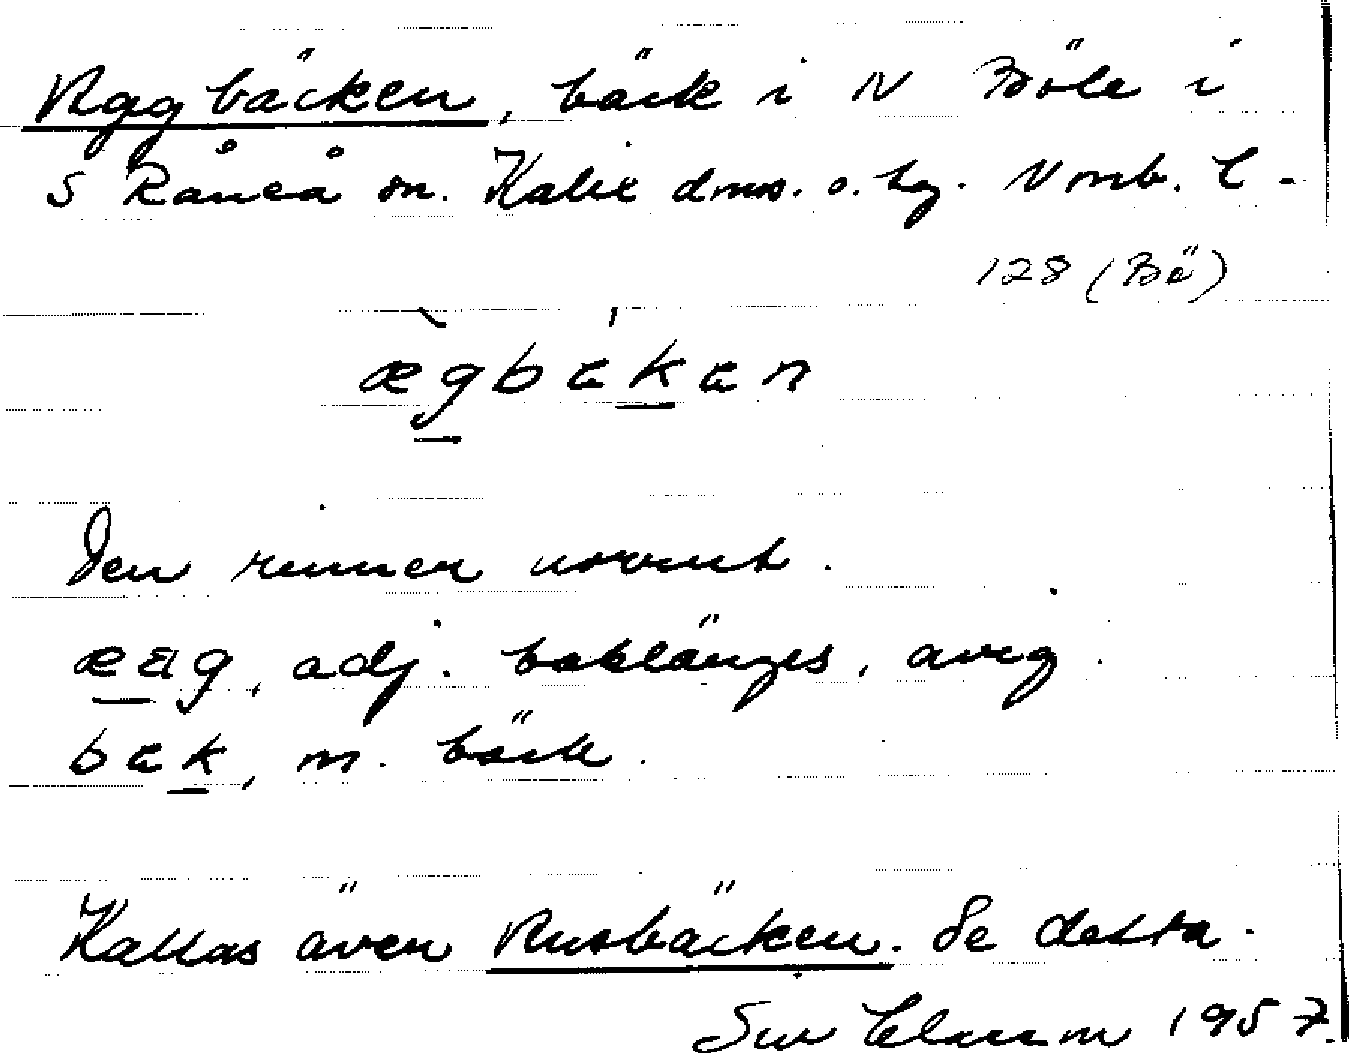 Aggbäcken, bäck i N Böle i
S Råneå sn. Kalix dms. o. hg. Nonb. l -
128 (Bä)
ægbäkän
Den rinner norrut.
æag, adj. baklänges, avig.
bäk, m. bäck.
Kallas även Rusbäcken. Se detta.
Siv 1957.